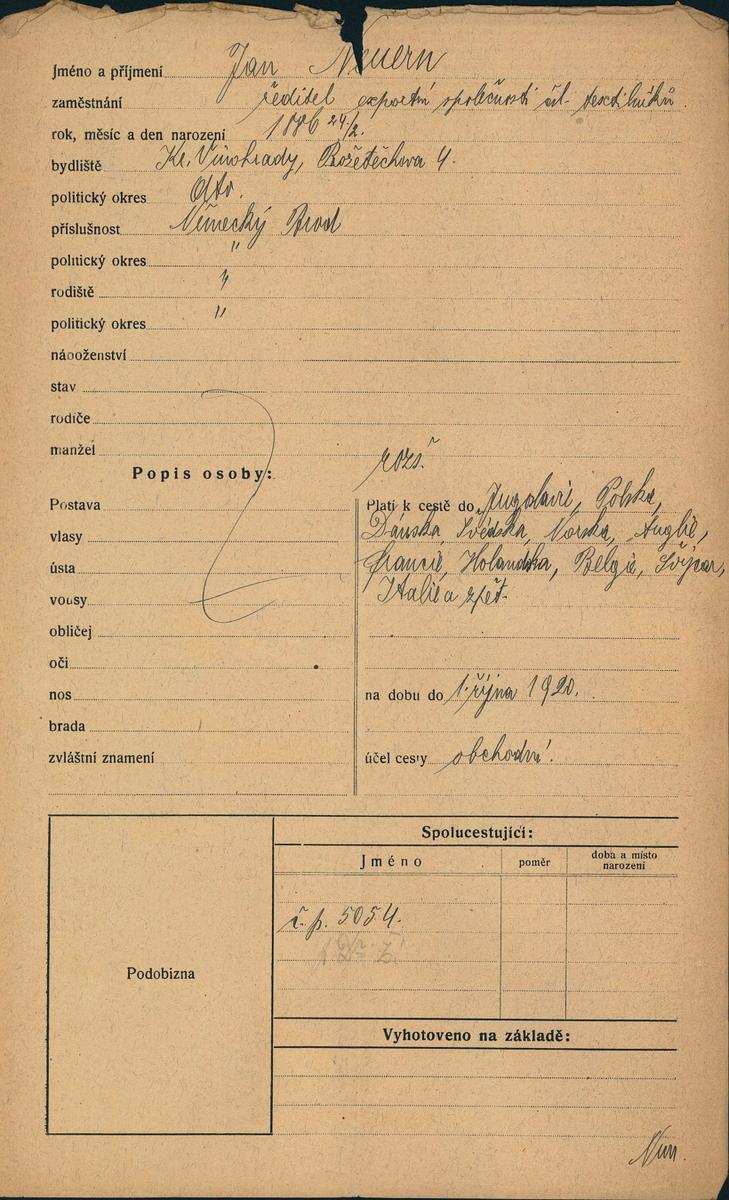 Jméno a příjmení Jan Neuern
zaměstnání ředitel exportní společnosti čsl. textilníků.
rok, měsíc a den narození 1886 24/2.
bydliště Kr. Vinohrady, Božetěchova 4.
politický okres dto.
příslušnost Německý Brod
politický okres "
rodiště "
politický okres "
náboženství
stav
rodiče
manžel
rozš.
Popis osoby:
Postava
vlasy
ústa
vousy
obličej
oči
nos
brada
zvláštní znamení
Platí k cestě do Jugoslavie, Polska,
Dánska, Švédska, Norska, Anglie,
Francie, Holandska, Belgie, Švýcar,
Italie a zpět.
na dobu do 1. října 1920.
účel cesty obchodní.
Podobizna
Spolucestující:
Jméno poměr doba a místo
narození
č.p. 5054.
Vyhotoveno na základě: